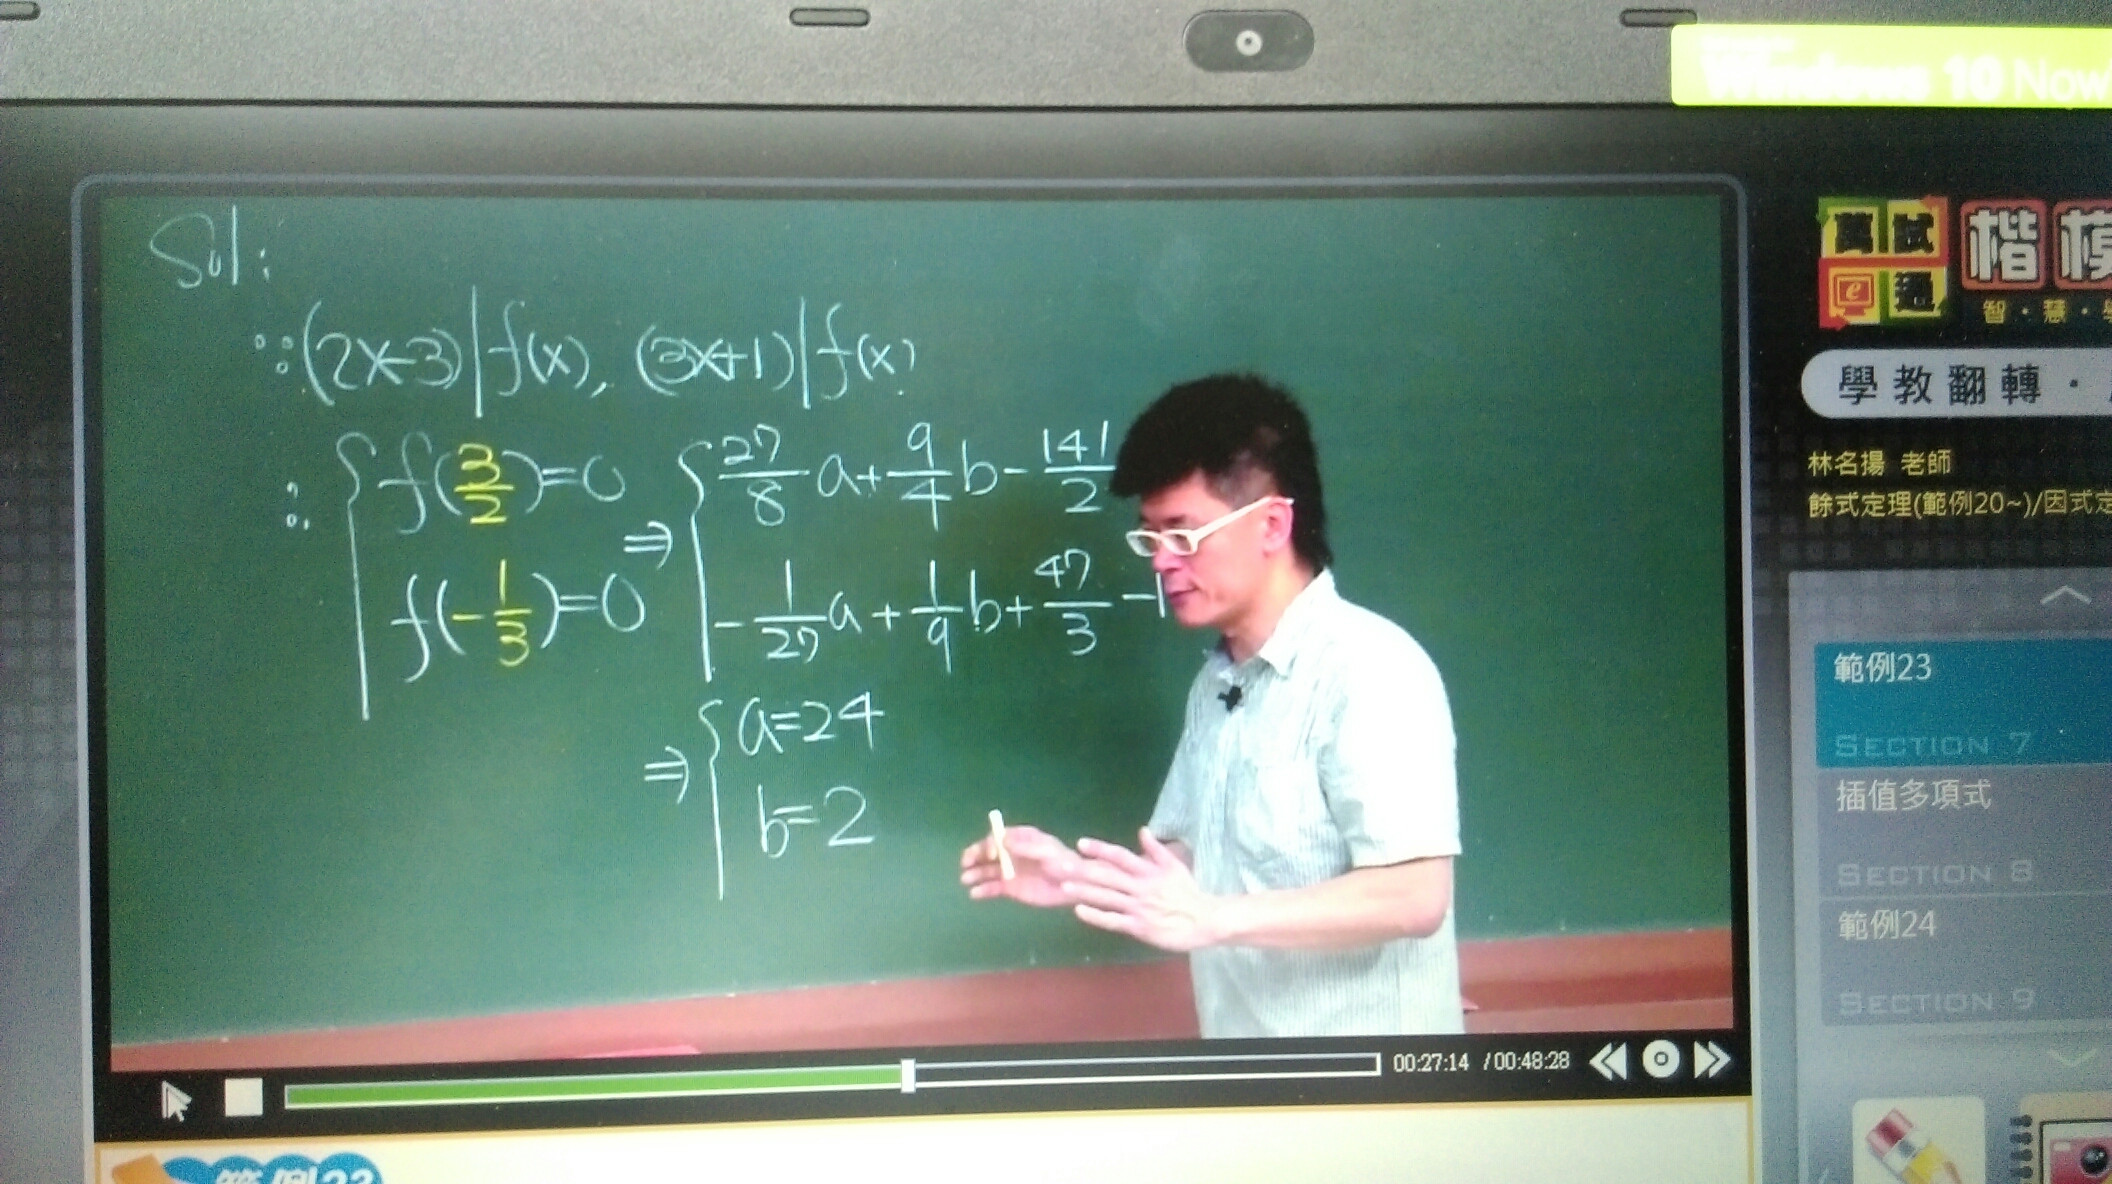 Windows 10 Now
Sol:
∵(2x-3)|f(x), (3x+1)|f(x)
∴ { f(3/2)=0
f(-1/3)=0
⇒ { 27/8 a + 9/4 b - 141/2
-1/27 a + 1/9 b + 47/3 -1
⇒ { a=24
b=2
00:27:14 / 00:48:28
範例23
萬試e通
楷模
智・慧・學
學教翻轉・
林名揚 老師
餘式定理(範例20~)/因式定
範例23
SECTION 7
插值多項式
SECTION 8
範例24
SECTION 9